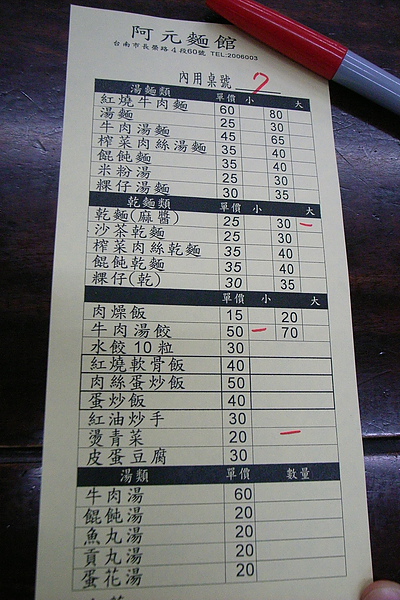 阿元麵館
台南市長榮路4段60號 TEL:2006003
內用桌號 7
湯麵類 單價 小 大
紅燒牛肉麵 60 80
湯麵 25 30
牛肉湯麵 45 65
榨菜肉絲湯麵 35 40
餛飩麵 35 40
米粉湯 25 30
粿仔湯麵 30 35
乾麵類 單價 小 大
乾麵(麻醬) 25 30 一
沙茶乾麵 25 30
榨菜肉絲乾麵 35 40
餛飩乾麵 35 40
粿仔(乾) 30 35
單價 小 大
肉燥飯 15 20
牛肉湯餃 50 一 70
水餃10粒 30
紅燒軟骨飯 40
肉絲蛋炒飯 50
蛋炒飯 40
紅油炒手 30
燙青菜 20 一
皮蛋豆腐 30
湯類 單價 數量
牛肉湯 60
餛飩湯 20
魚丸湯 20
貢丸湯 20
蛋花湯 20